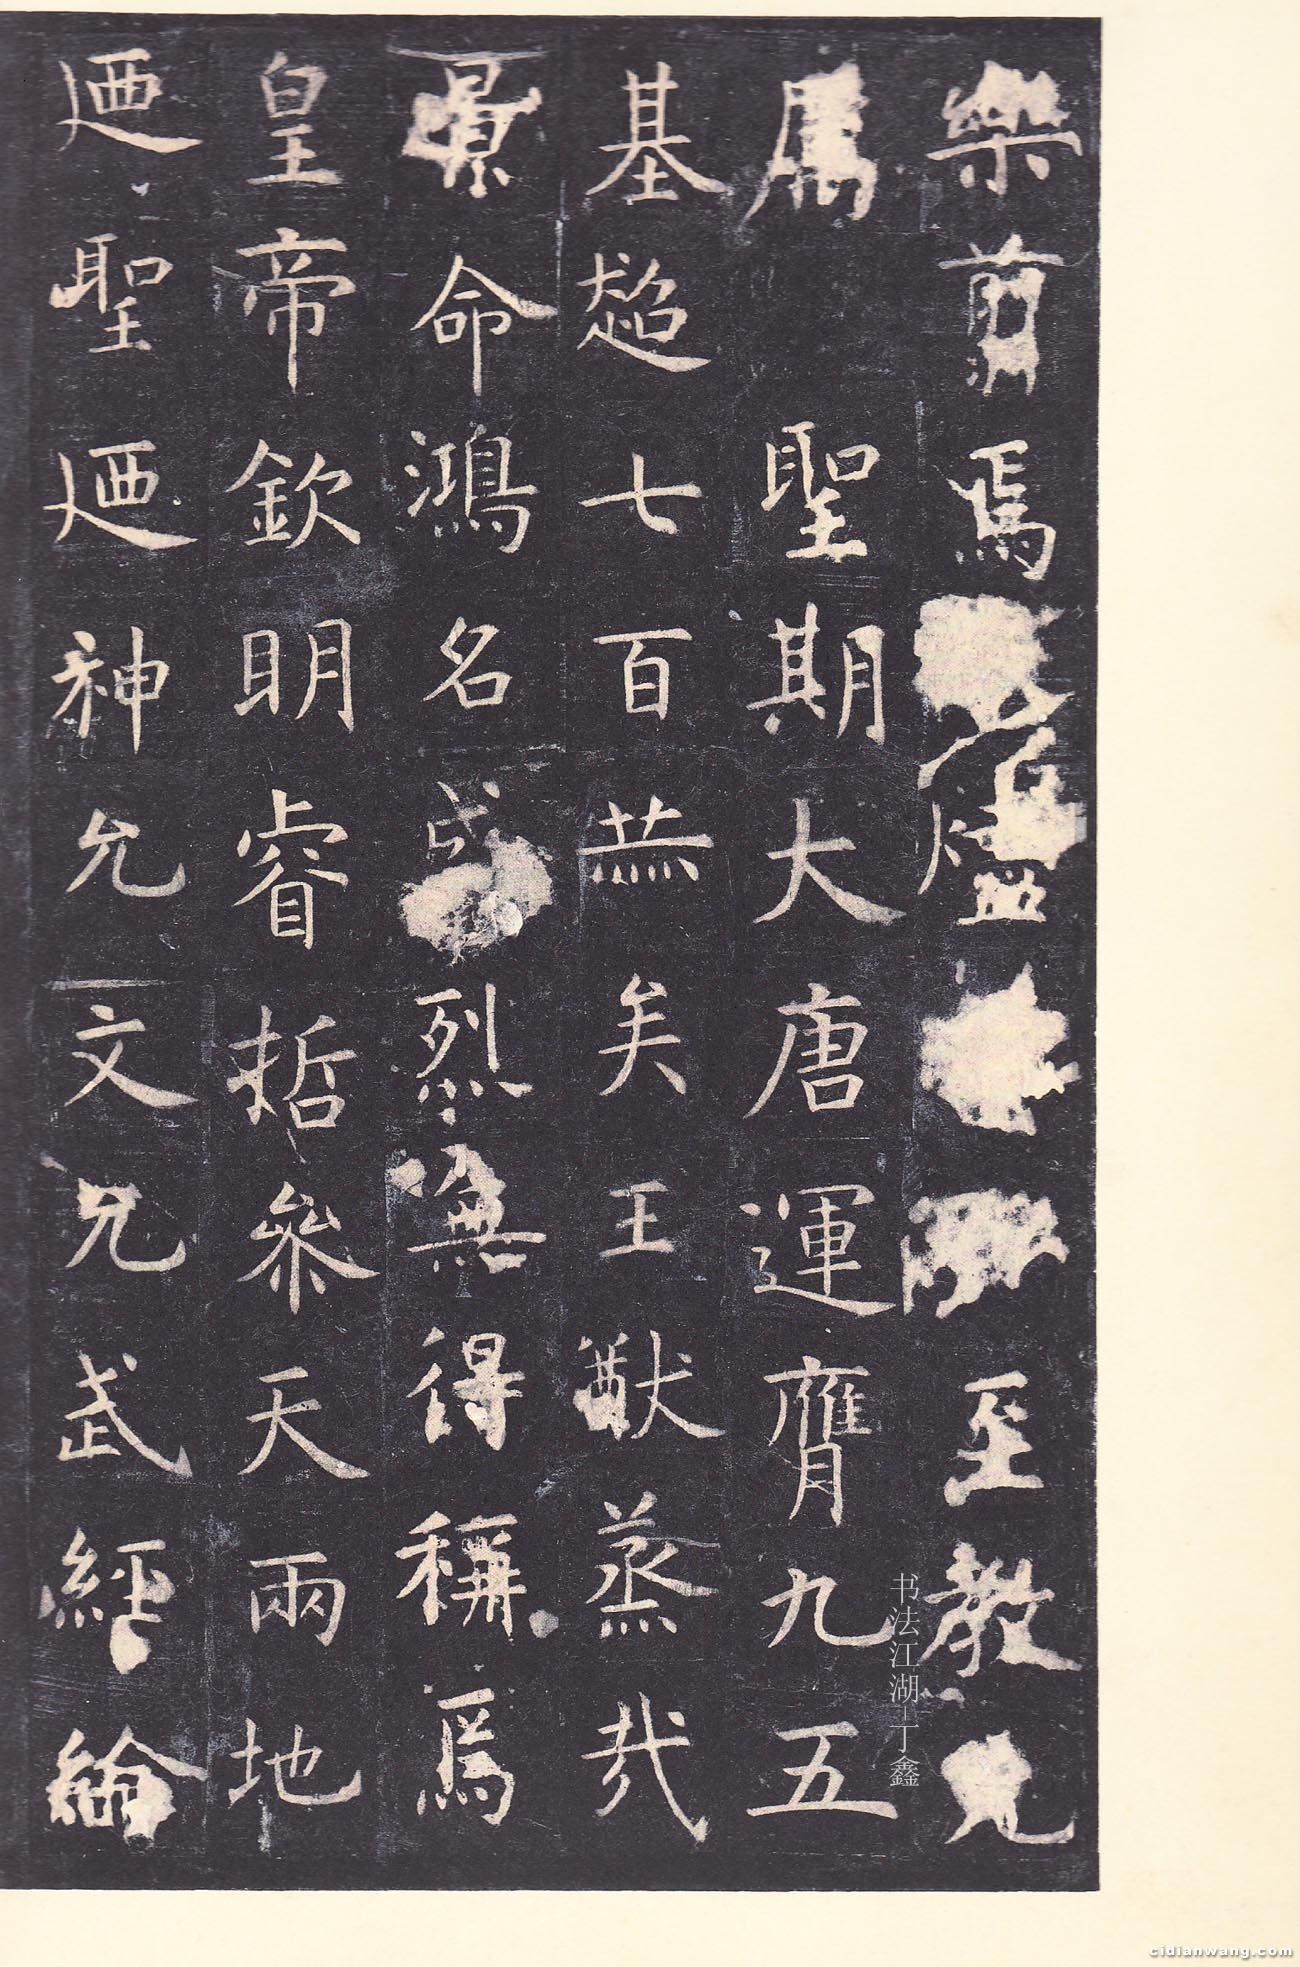 樂翦焉至教
厲聖期大唐運膺九五
基超七百㷼矣王猷蒸哉
景命鴻名盛烈無得稱焉
皇帝欽明睿哲參天兩地
迺聖迺神允文允武經綸
书法江湖-丁鑫
cidianwang.com